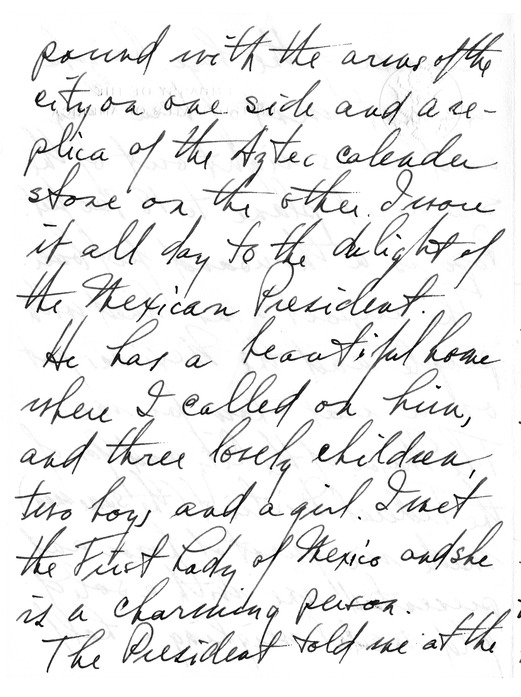 pound with the arms of the
city on one side and a re-
plica of the Aztec calender
stone on the other. I wore
it all day to the delight of
the Mexican President.
He has a beautiful home
where I called on him,
and three lovely children,
two boys and a girl. I met
the First Lady of Mexico and she
is a charming person.
The President told me at the